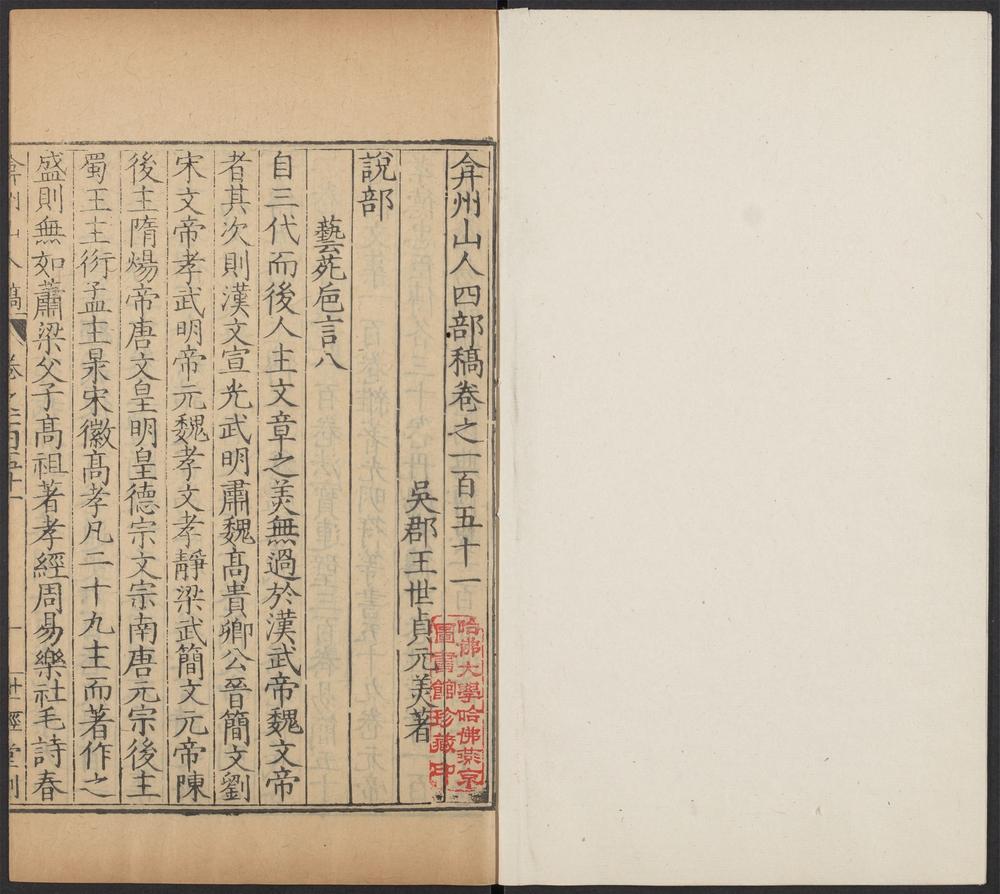 弇州山人四部稿卷之一百五十一
吳郡王世貞元美著
說部
藝苑卮言八
自三代而後人主文章之美無過於漢武帝魏文帝
者其次則漢文宣光武明肅魏髙貴卿公晉簡文劉
宋文帝孝武明帝元魏孝文孝靜梁武簡文元帝陳
後主隋煬帝唐文皇明皇德宗文宗南唐元宗後主
蜀王主衍孟主㫤宋徽髙孝凡二十九主而著作之
盛則無如蕭梁父子髙祖著孝經周易樂社毛詩春
弇州山人稿 卷之一百五十一 一 世經堂刻
哈佛大學哈佛燕京
圖書館珍藏印